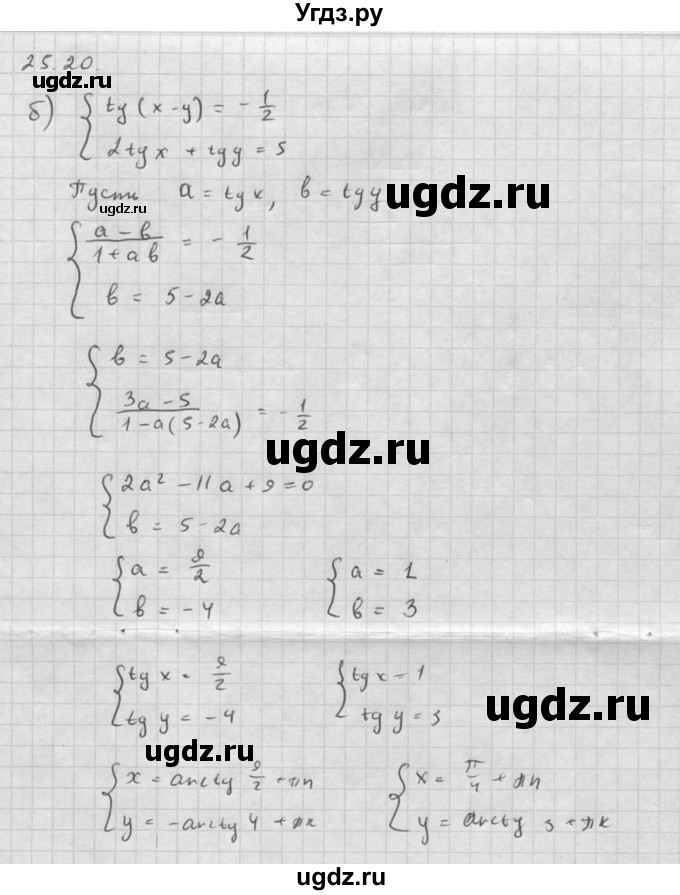 Угдз.ру
25.20.
б) { tg (x - y) = - 1/2
2tg x + tg y = 5
Пусть a = tg x, b = tg y
ugdz.ru
ugdz.ru
ugdz.ru
{ (a - b)/(1 + ab) = - 1/2
b = 5 - 2a
{ b = 5 - 2a
(3a - 5)/(1 - a(5 - 2a)) = - 1/2
ugdz.ru
{ 2a² - 11a + 9 = 0
b = 5 - 2a
{ a = 9/2 { a = 1
b = - 4 b = 3
{ tg x = 9/2 { tg x = 1
tg y = - 4 tg y = 3
ugdz.ru
ugdz.ru
{ x = arctg 9/2 + πn { x = π/4 + πn
y = - arctg 4 + πk y = arctg 3 + πk
ugdz.ru